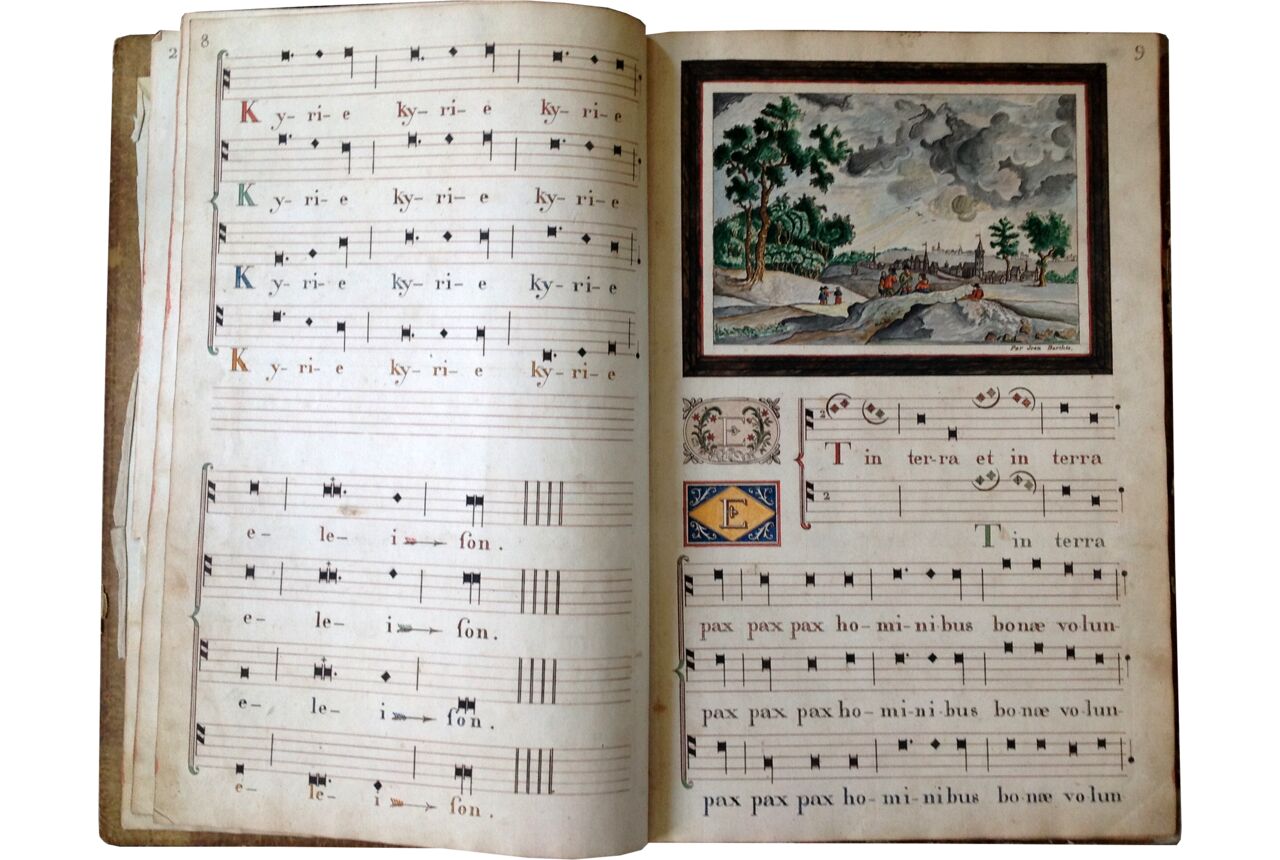 2
8
K y- ri- e ky- ri- e ky- ri- e
K y- ri- e ky- ri- e ky- ri- e
K y- ri- e ky- ri- e ky- ri- e
K y- ri- e ky- ri- e ky- ri- e
e- le- i ſon.
e- le- i ſon.
e- le- i ſon.
e- le- i ſon.
9
Par Jean
E
2
T in ter-ra et in terra
E
2
T in terra
pax pax pax ho- mi- ni bus bonæ vo lun-
pax pax pax ho- mi- ni- bus bo-næ vo-lun-
pax pax pax ho- mi- ni bus bo-næ vo lun